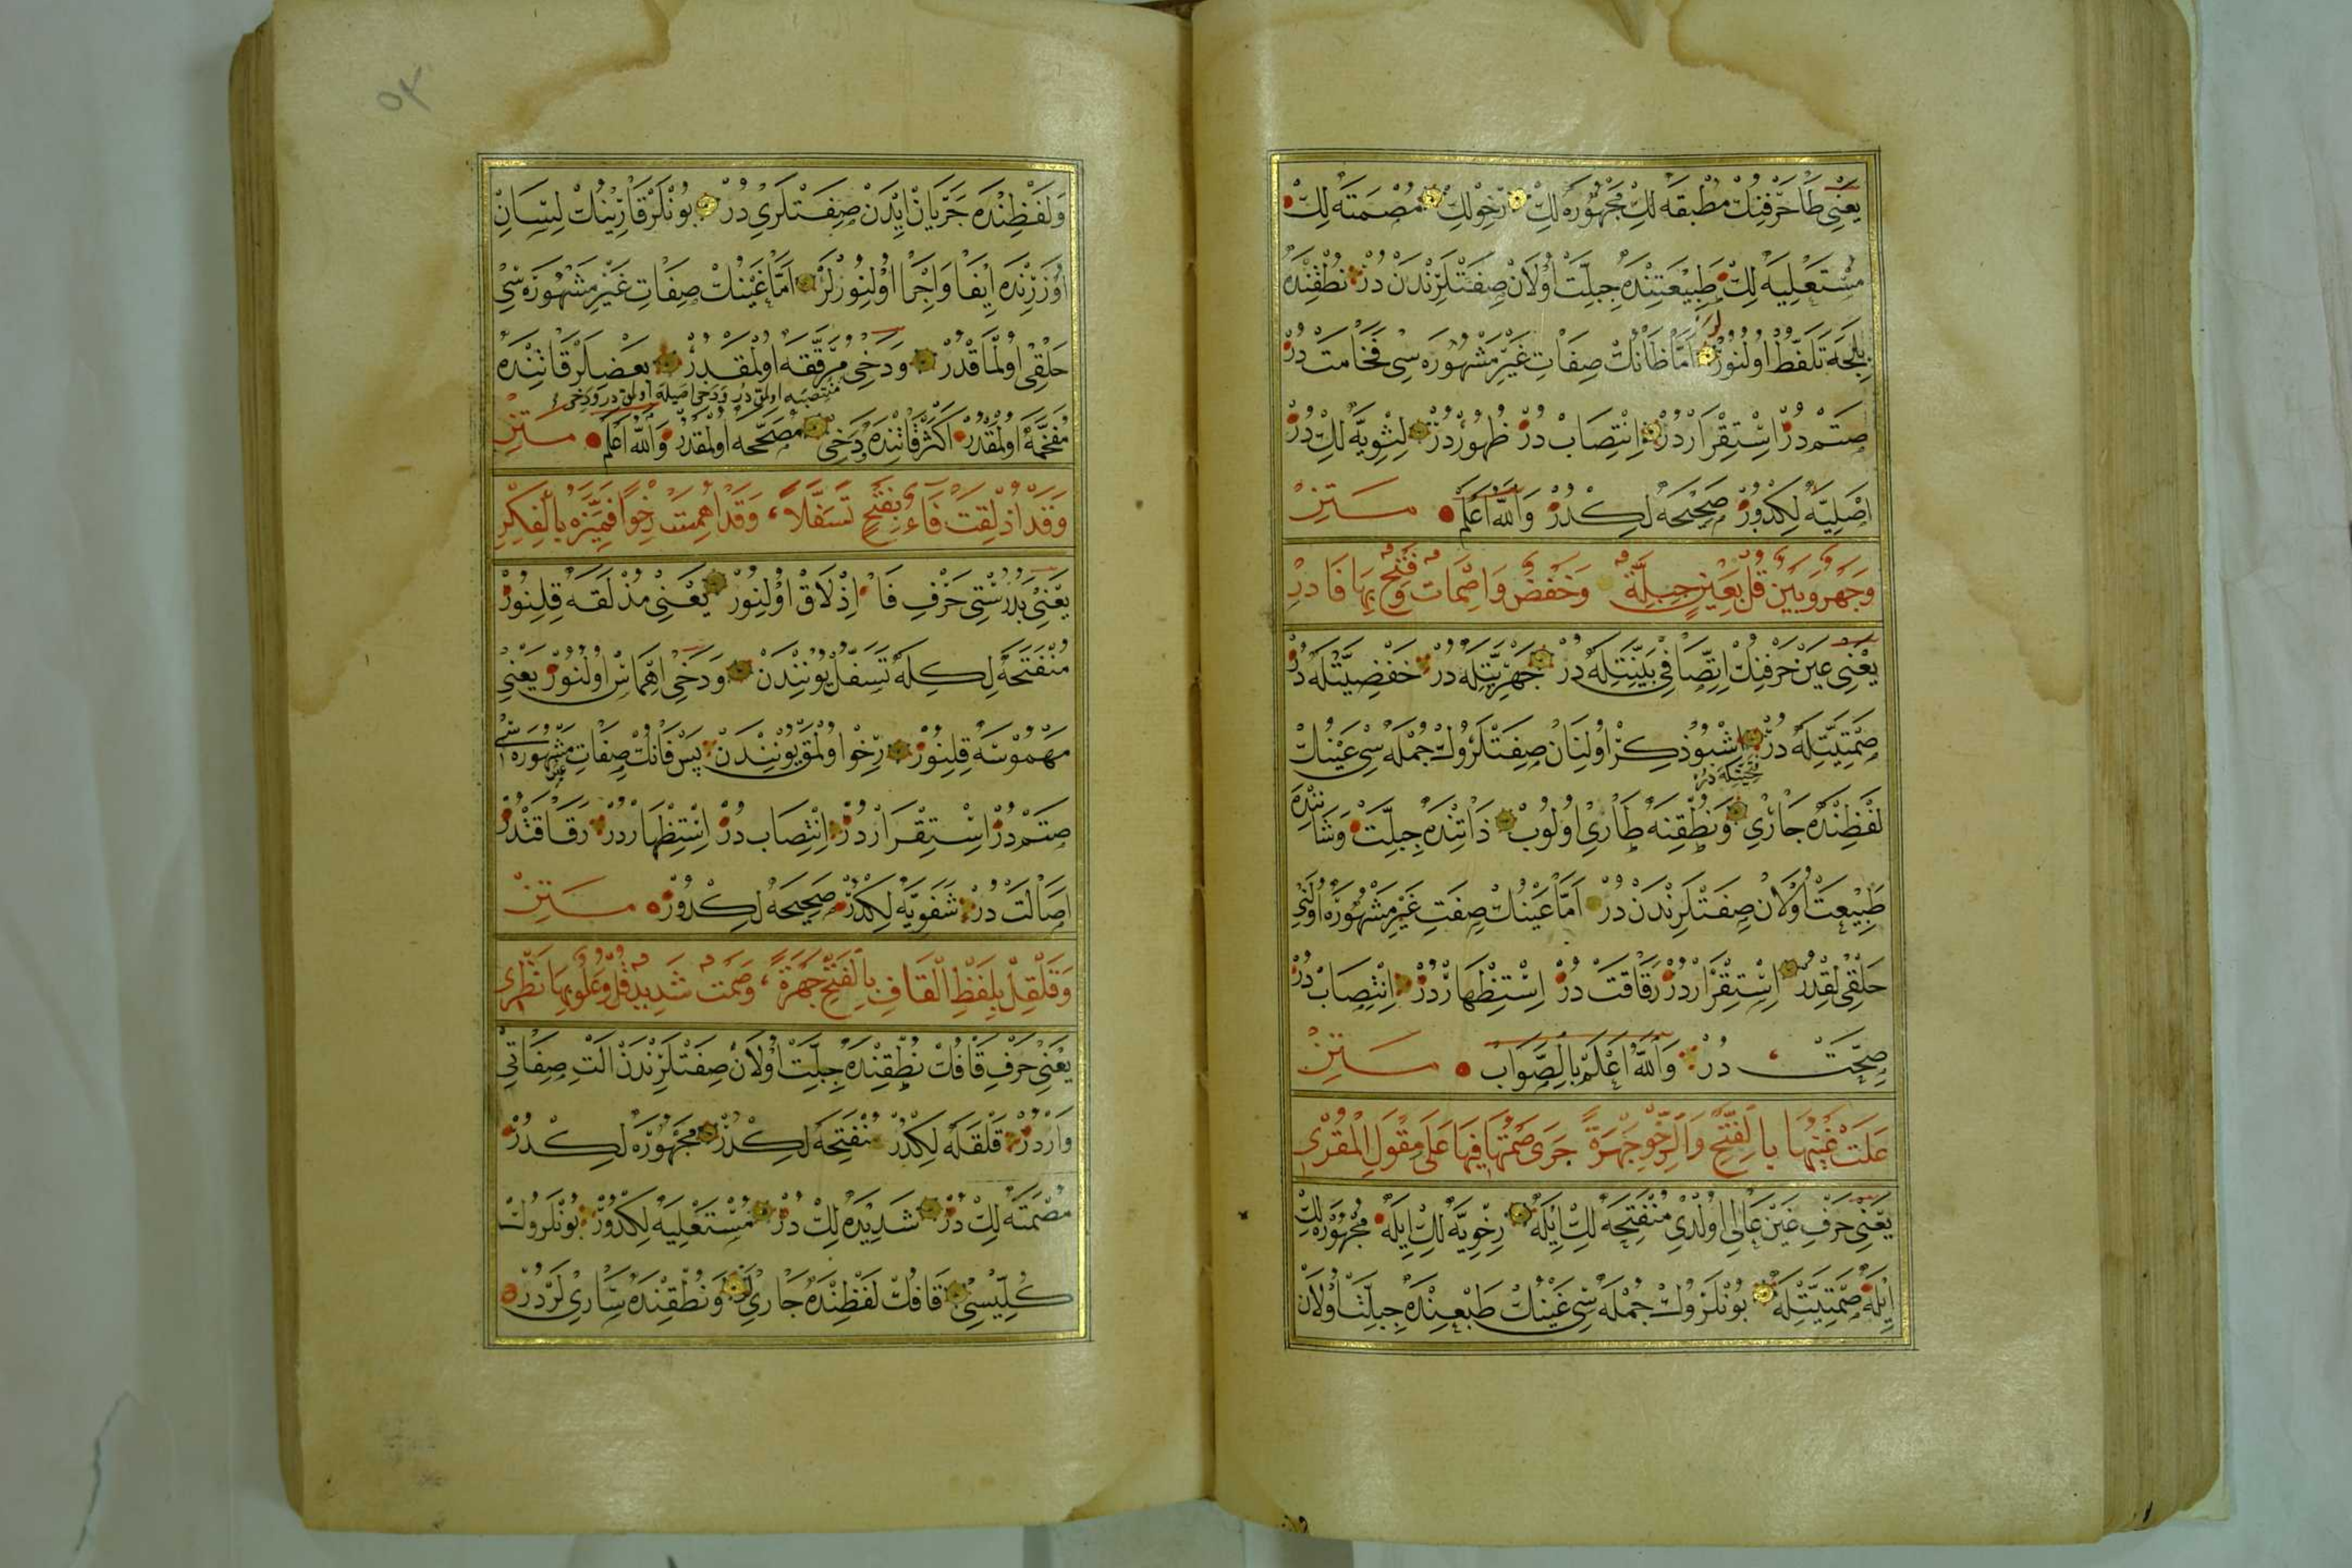 يعنى ظا حرفنك مطبقه لك مجهوره لك رخولك مصمته لك
مستعليه لك طبيعتنده جبلت اولان صفتلرندن در نطقنده
بلجه تلفظ اولنور اما ظانك صفات غير مشهوره سى فخامت در
صتم در استقرار در انتصاب در ظهور در لثويه لك در
اصليه لكدور صحيحه لكدر والله اعلم متن
وجهر وبين قل بعين جبلة وخفض واصمات وفتح بها فادر
يعنى عين حرفنك اتصافى بينيتله در جهريتله در خفضيتله در
صمتيتله در اشبو ذكر اولنان صفتلروك جمله سى عينك
فتحيتله در
لفظنده جارى ونطقنه طارى اولوب ذاتنده جبلت وشاننده
طبيعت اولان صفتلرندن در اما عينك صفت غير مشهوره اولنى
حلقى لقدر استقرار در رقاقت در استظهار در انتصاب در
صحت در والله اعلم بالصواب متن
علت غينها بالفتح والرخو جهرة جرى صمتها فيها على مقول المقرى
يعنى حرف غين عالى اولدى منفتحه لك ايله رخويه لك ايله مجهوره لك
ايله صمتيتله بونلروك جمله سى غينك طبعنده جبلت اولان
ولفظنده جريان ايدن صفتلرى در بونلر قارينك لسان
اوزرنده ايفا واجرا اولنورلر اما غينك صفات غير مشهوره سى
حلقى اولماقدر ودخى مرققه اولمقدر بعضلر قاتنده
منتصبه اولمق در ودخى اصيله اولمق در ودخى
مفخمه اولمقدر اكثر قاتنده دخى مصححه اولمقدر والله اعلم متن
وقد اذلقت فاء بفتح تسفلا وقد اهمست رخوا فميزه بالفكر
يعنى بدرستى حرف فا اذلاق اولنور يعنى مذلقه قلنور
منفتحه لكله تسفل يونندن ودخى اهماس اولنور يعنى
مهموسه قلنور رخو اولمق يونندن پس فانك صفات غير مشهوره سى
صتم در استقرار در انتصاب در استظهار در رقاقتدر
اصالت در شفويه لكدر صحيحه لكدور متن
وقلقل بلفظ القاف بالفتح جهرة وصمت شديد قل وعلو بها نظرى
يعنى حرف قافك نطقنده جبلت اولان صفتلرندن الت صفاتى
واردر قلقله لكدر منفتحه لكدر مجهوره لكدر
مصمته لك در شديده لك در مستعليه لكدور بونلروك
كليسى قافك لفظنده جارى لر ونطقنده سارى لردر
٥٢